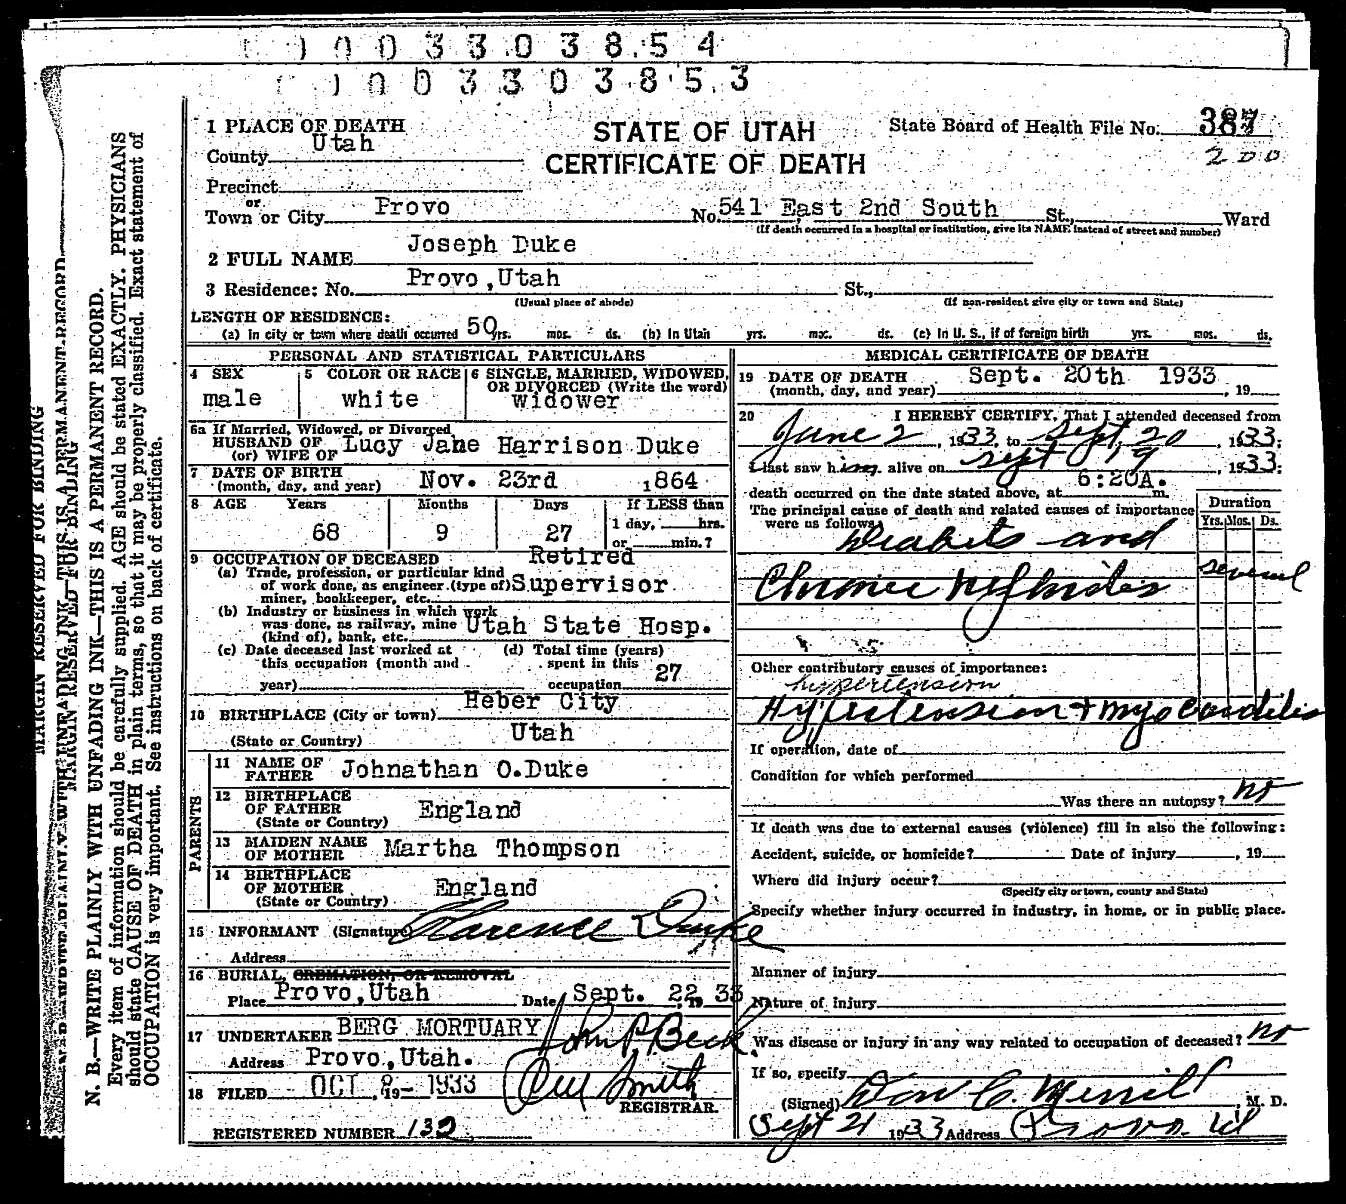 0 0 3 3 0 3 8 5 4
0 0 3 3 0 3 8 5 3
MARGIN RESERVED FOR BINDING
N. B.—WRITE PLAINLY WITH UNFADING INK—THIS IS A PERMANENT RECORD.
Every item of information should be carefully supplied. AGE should be stated EXACTLY. PHYSICIANS
should state CAUSE OF DEATH in plain terms, so that it may be properly classified. Exact statement of
OCCUPATION is very important. See instructions on back of certificate.
STATE OF UTAH
CERTIFICATE OF DEATH
State Board of Health File No. 387
200
1 PLACE OF DEATH
County Utah
Precinct
or
Town or City Provo No. 541 East 2nd South St., Ward
(If death occurred in a hospital or institution, give its NAME instead of street and number)
2 FULL NAME Joseph Duke
3 Residence: No. Provo, Utah St.,
(Usual place of abode) (If non-resident give city or town and State)
LENGTH OF RESIDENCE:
(a) In city or town where death occurred 50 yrs. mos. ds. (b) In Utah yrs. mos. ds. (c) In U. S., if of foreign birth yrs. mos. ds.
PERSONAL AND STATISTICAL PARTICULARS
4 SEX male
5 COLOR OR RACE white
6 SINGLE, MARRIED, WIDOWED, OR DIVORCED (Write the word) widower
5a If Married, Widowed, or Divorced
HUSBAND OF Lucy Jane Harrison Duke
(or) WIFE OF
7 DATE OF BIRTH
(month, day, and year) Nov. 23rd 1864
8 AGE Years Months Days If LESS than
68 9 27 1 day, hrs.
or min.?
9 OCCUPATION OF DECEASED Retired
(a) Trade, profession, or particular kind
of work done, as engineer (type of) Supervisor
miner, bookkeeper, etc.
(b) Industry or business in which work
was done, as railway, mine Utah State Hosp.
(kind of), bank, etc.
(c) Date deceased last worked at this occupation (month and year)
(d) Total time (years) spent in this occupation 27
10 BIRTHPLACE (City or town) Heber City
(State or Country) Utah
PARENTS
11 NAME OF FATHER Johnathan O. Duke
12 BIRTHPLACE OF FATHER England
(State or Country)
13 MAIDEN NAME OF MOTHER Martha Thompson
14 BIRTHPLACE OF MOTHER England
(State or Country)
15 INFORMANT (Signature) Clarence Duke
Address
16 BURIAL, CREMATION, OR REMOVAL
Place Provo, Utah Date Sept. 22 19 33
17 UNDERTAKER BERG MORTUARY John P Beck
Address Provo, Utah.
18 FILED OCT 8 19 - 1933 Smith
REGISTRAR.
REGISTERED NUMBER 132
MEDICAL CERTIFICATE OF DEATH
19 DATE OF DEATH
(month, day, and year) Sept. 20th 1933, 19
20 I HEREBY CERTIFY, That I attended deceased from
June 2, 1933, to Sept, 20, 1933;
I last saw him alive on Sept 19, 1933;
death occurred on the date stated above, at 6:20A. m.
The principal cause of death and related causes of importance
were as follows:
Duration
Yrs. Mos. Ds.
Diabetes and
Chronic Nephritis several
Other contributory causes of importance:
hypertension
Hypertension + myocarditis
If operation, date of
Condition for which performed
Was there an autopsy? no
If death was due to external causes (violence) fill in also the following:
Accident, suicide, or homicide? Date of injury, 19
Where did injury occur?
(Specify city or town, county and State)
Specify whether injury occurred in industry, in home, or in public place.
Manner of injury
Nature of injury
Was disease or injury in any way related to occupation of deceased? no
If so, specify
(Signed) Don C. Merrill, M. D.
Sept 21 1933 Address Provo. Ut